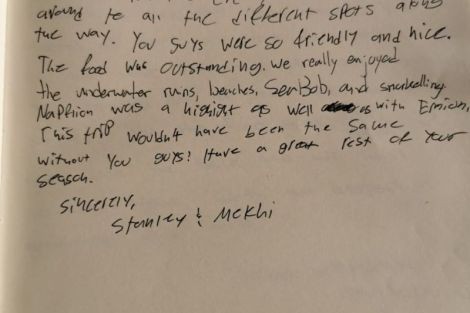 around to all the different spots along
the way. You guys were so friendly and nice.
The food was outstanding. We really enjoyed
the underwater ruins, beaches, SeaBob, and snorkelling.
was a highlight as well as with
This trip wouldn't have been the same
without you guys! Have a great rest of your
season.
Sincerely,
Stanley & Mekhi